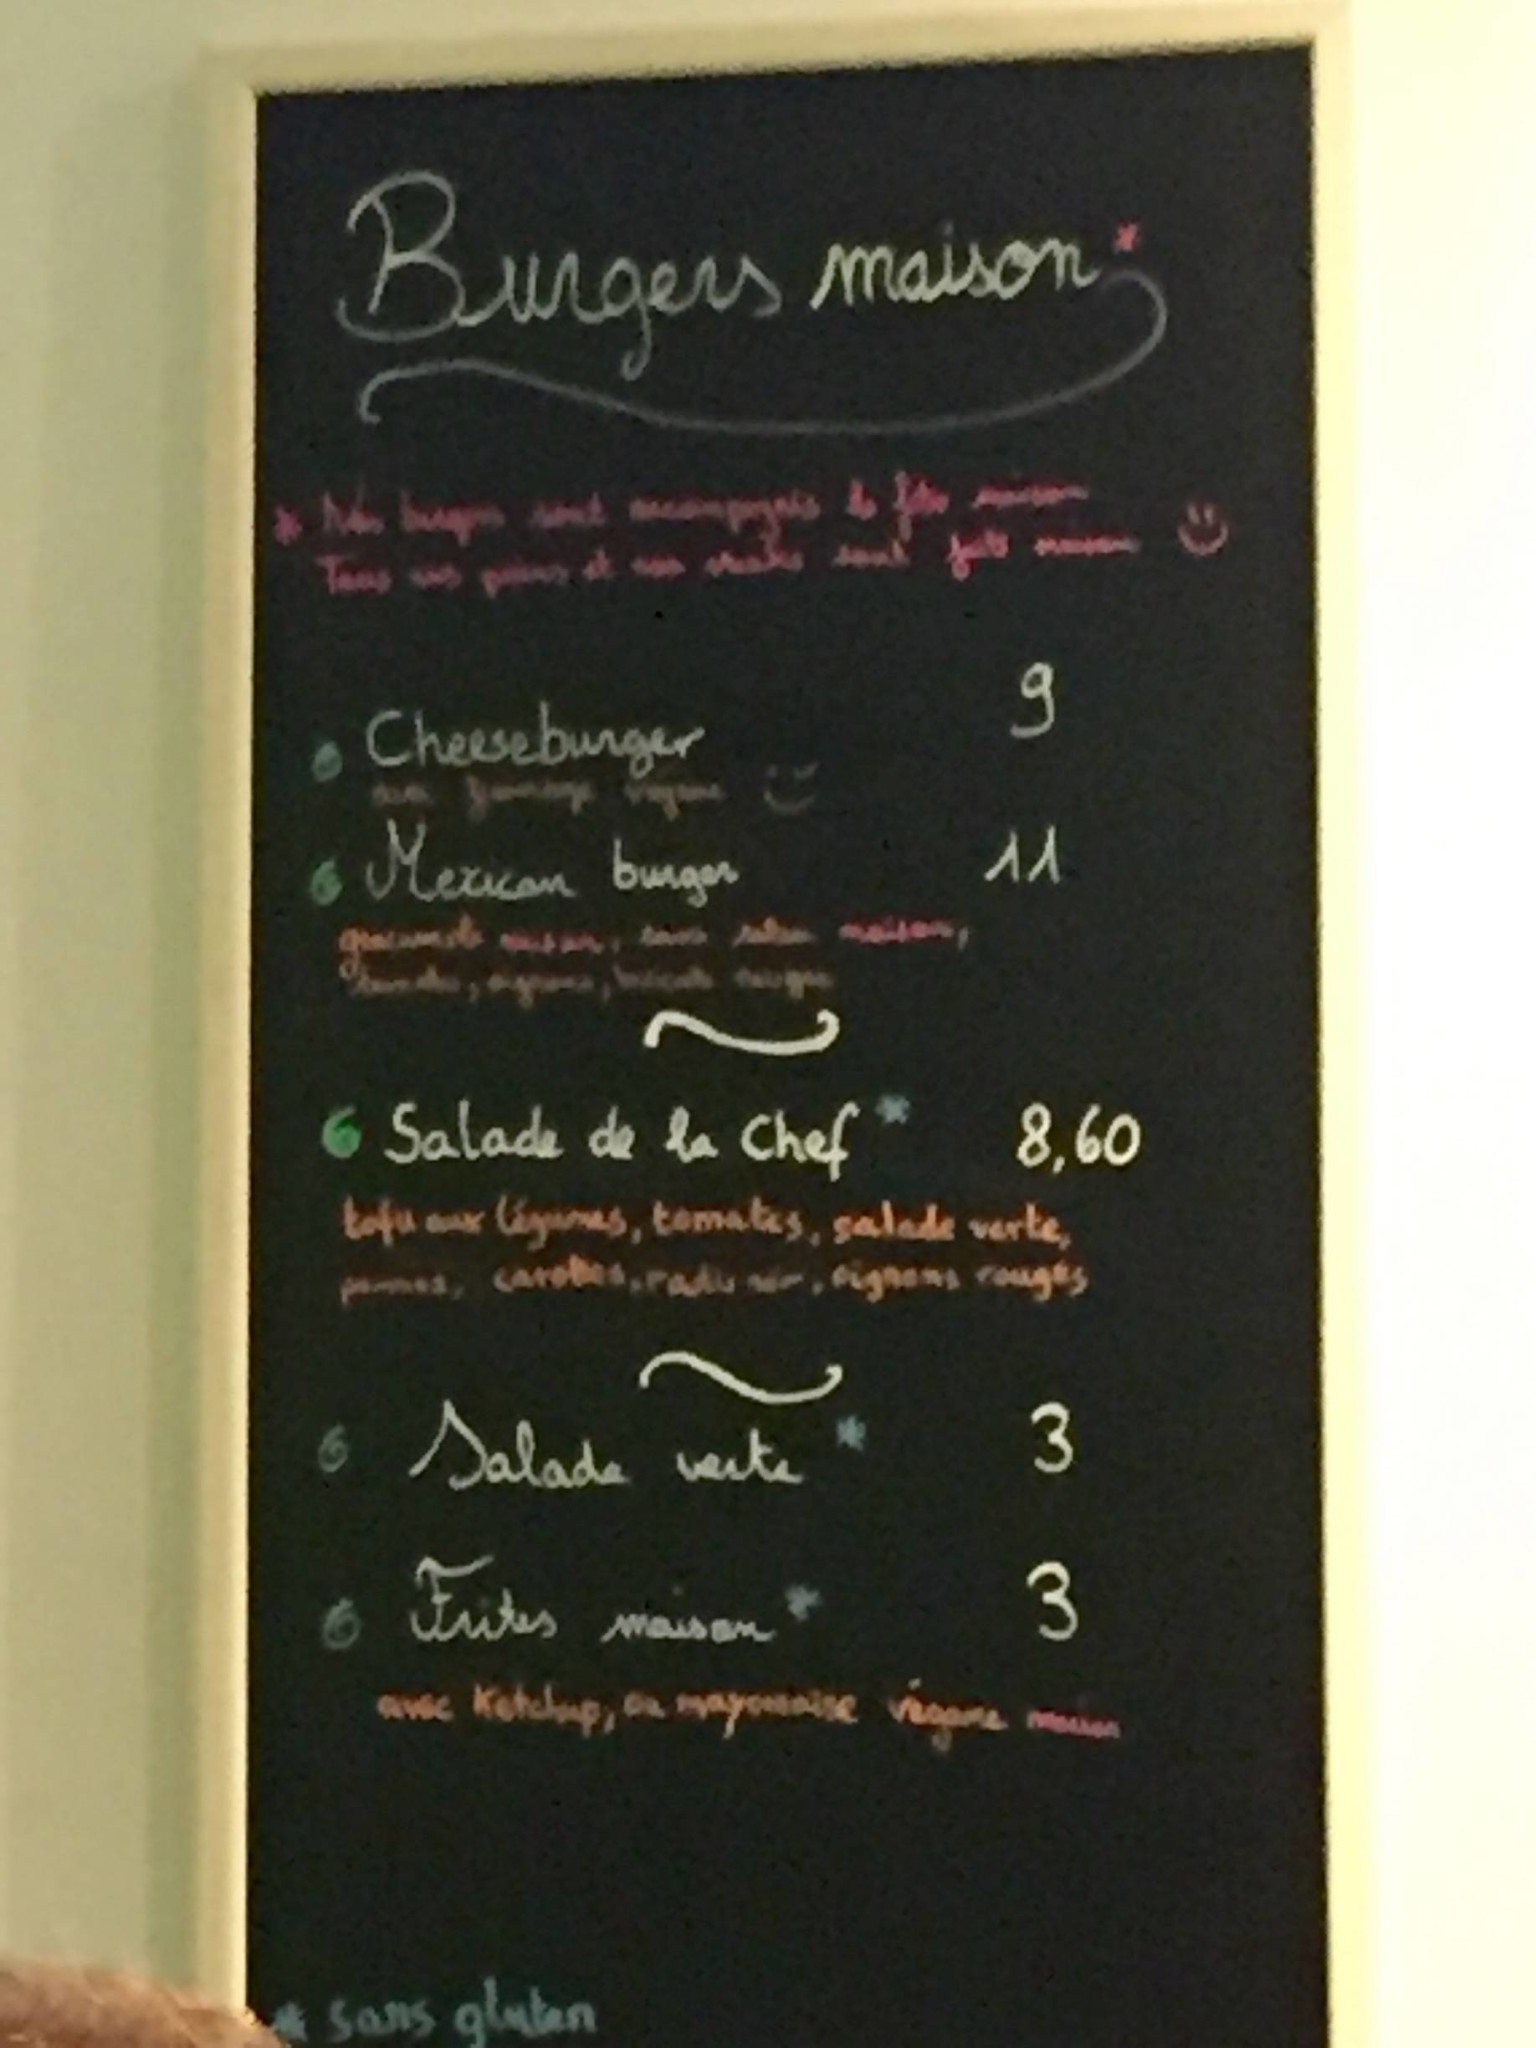 Burgers maison *
* Nos burgers sont accompagnés de frites maison
Tous nos pains et nos steaks sont faits maison
Cheeseburger 9
avec fromage végane
Mexican burger 11
guacamole maison, sauce salsa maison,
tomates, oignons, haricots rouges
Salade de la Chef * 8,60
tofu aux légumes, tomates, salade verte,
pommes, carottes, radis noir, oignons rouges
Salade verte * 3
Frites maison * 3
avec Ketchup, ou mayonnaise végane maison
* sans gluten